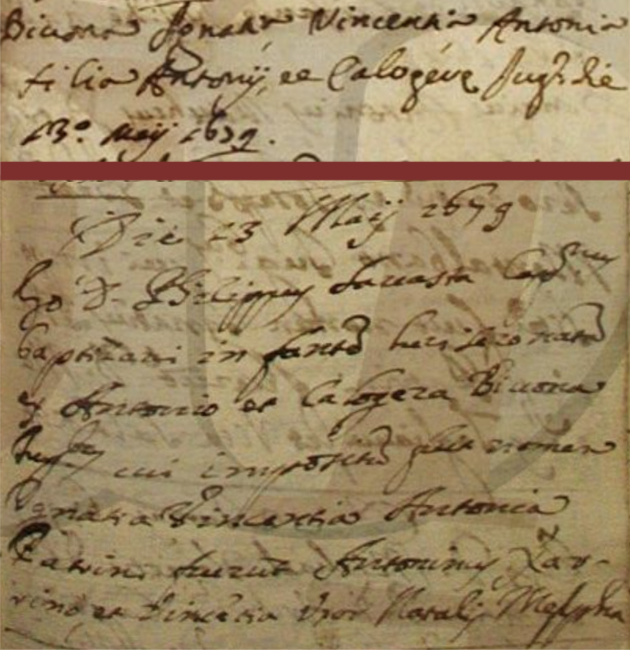 Bivona Ignatia Vincentia Antonia
filia Antonij, et Calogere Jug. die
23.º Maij 1679.
Die 23 Maij 1679
Ego D. Philippus Capnus
baptizavi in fantē heri 
ex Antonio et Calogera Bivona
Jug. cui impositū fuit nomen
Ignatia Vincentia Antonia
Patrini fuerunt Antoninus Lau-
rino et Vincētia uxor Natalis